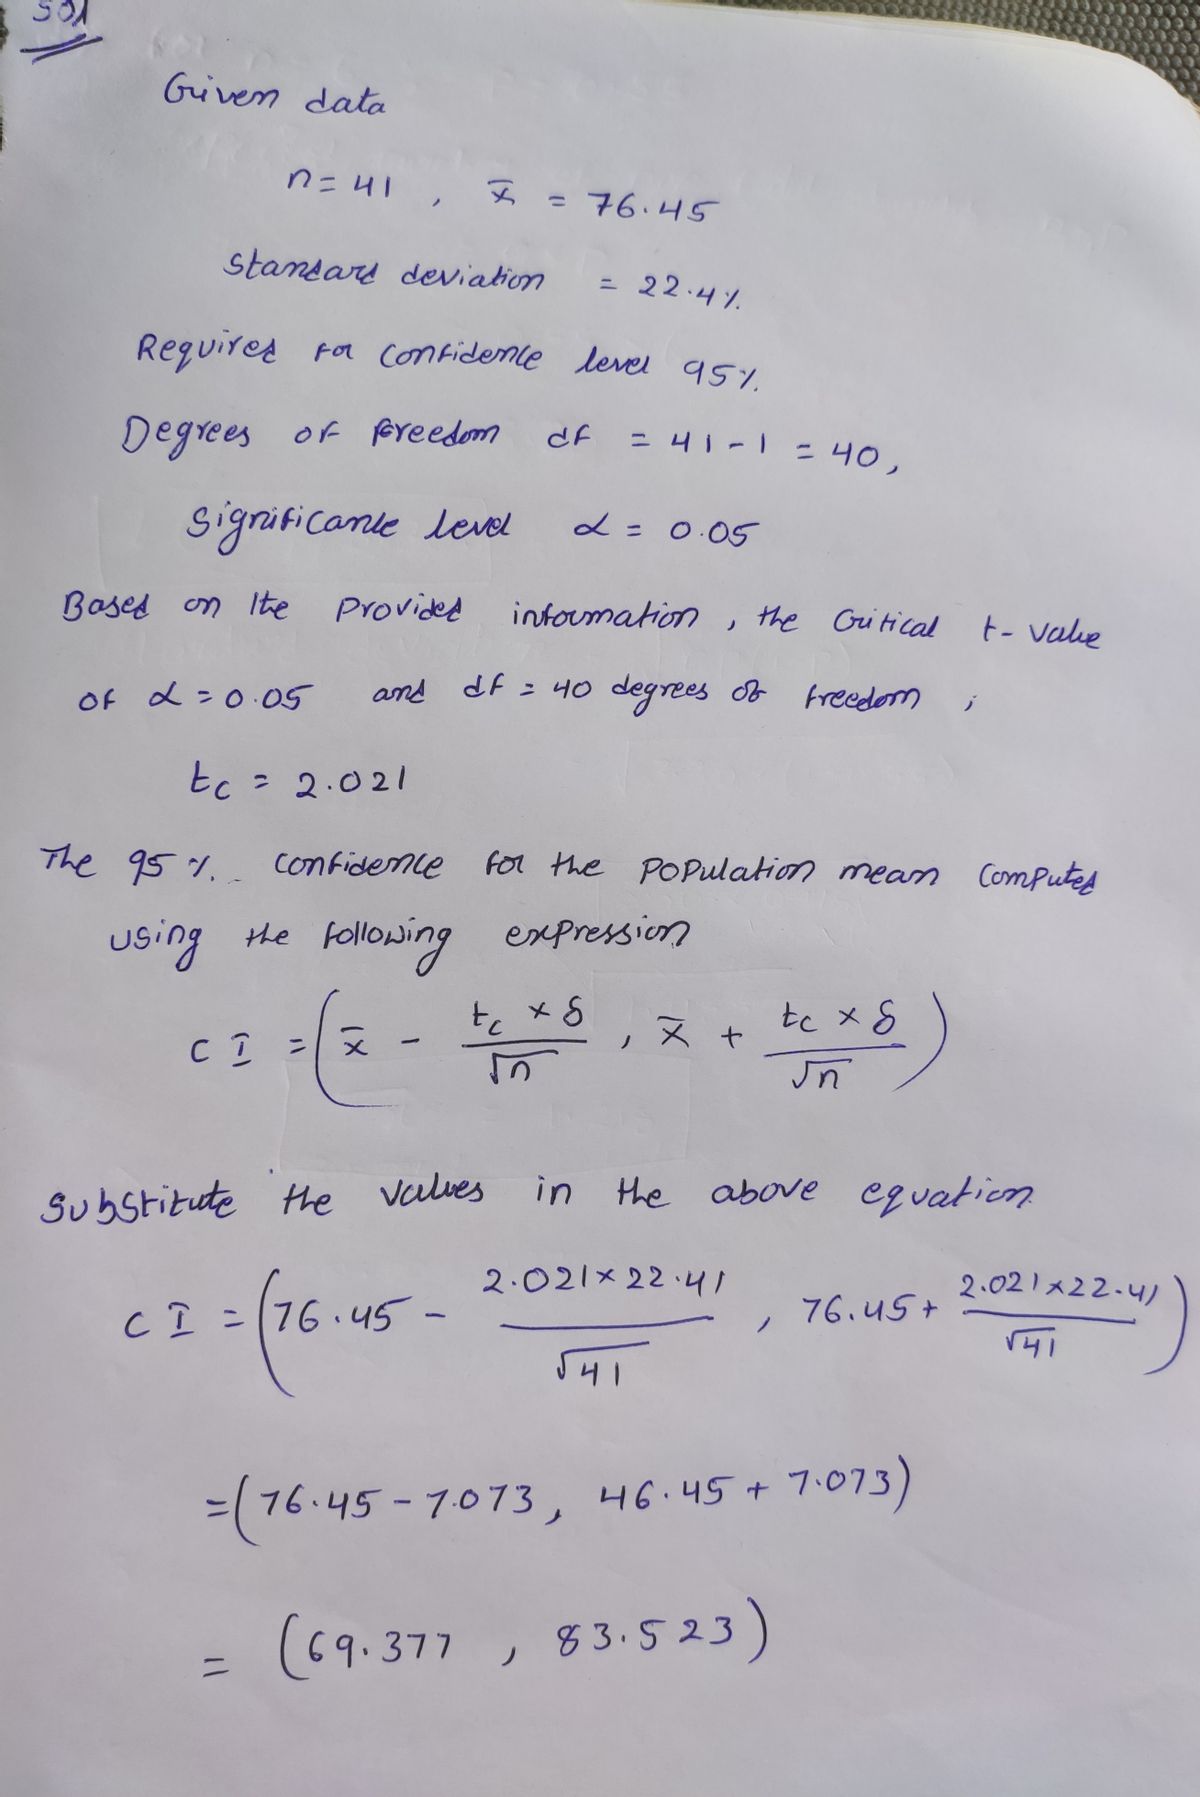 Sol
Given data
n = 41 , x̄ = 76.45
Standard deviation = 22.4%
Required for confidence level 95%.
Degrees of freedom df = 41 - 1 = 40,
Significance level α = 0.05
Based on the provided information , the critical t-value
of α = 0.05 and df = 40 degrees of freedom ;
tc = 2.021
The 95%. confidence for the population mean computed
using the following expression
CI = (x̄ - tc × δ / √n , x̄ + tc × δ / √n)
Substitute the values in the above equation.
CI = (76.45 - 2.021 × 22.41 / √41 , 76.45 + 2.021 × 22.41 / √41)
= (76.45 - 7.073, 46.45 + 7.073)
= (69.377 , 83.523)